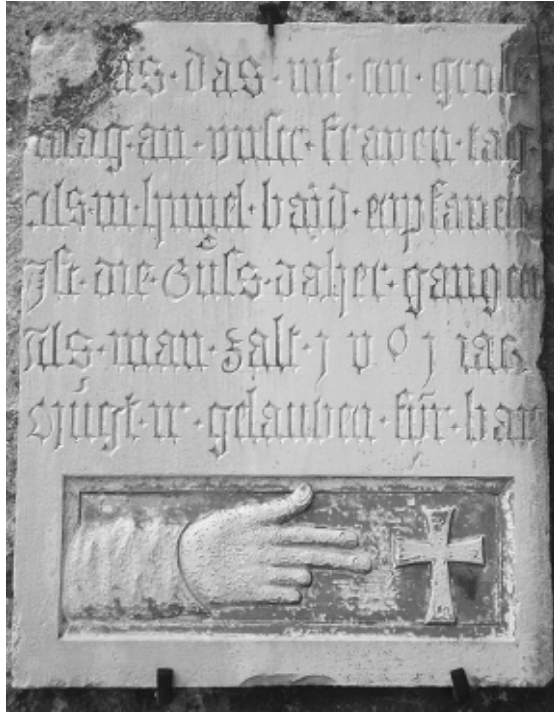 as · das · nit · ein · gross
mag · an · unser · fraven · tag ·
als · in · himel · baid · enpfangen
Ist · die · Güss · daher · gangen
Als · man · zalt · j v 0 j iar
Mügt · ir · gelauben · für · bar